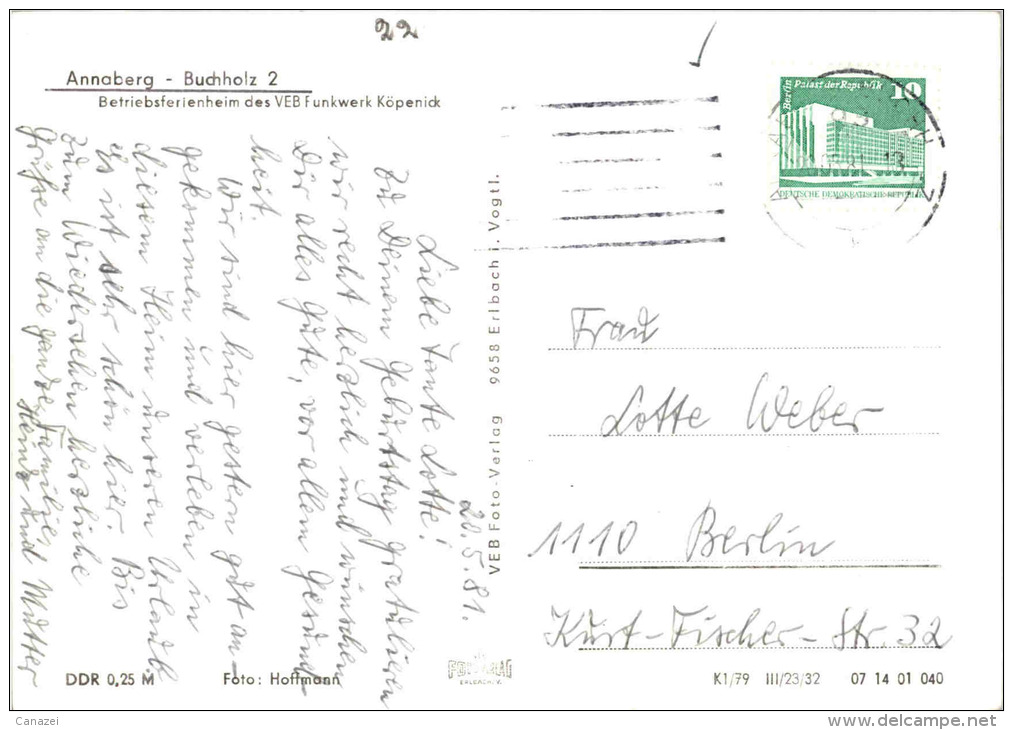 22
Annaberg - Buchholz 2
Betriebsferienheim des VEB Funkwerk Köpenick
20.5.81.
Liebe Tante Lotte!
Zu Deinem Geburtstag gratulieren
wir recht herzlich und wünschen
Dir alles Gute, vor allem Gesund-
heit.
Wir sind hier gestern gut an-
gekommen und verleben in
diesem Heim unseren Urlaub.
Es ist sehr schön hier. Bis
zum Wiedersehen herzliche
Grüße an die ganze Familie,
Heinz und Mutter
VEB Foto-Verlag 9658 Erlbach i. Vogtl.
Berlin Palast der Republik
10
DEUTSCHE DEMOKRATISCHE REPUBLIK
Frau
Lotte Weber
1110 Berlin
Kurt-Fischer-Str. 32
DDR 0,25 M
Foto: Hoffmann
ERLBACH/V.
K1/79 III/23/32 07 14 01 040
Canazei
www.delcampe.net